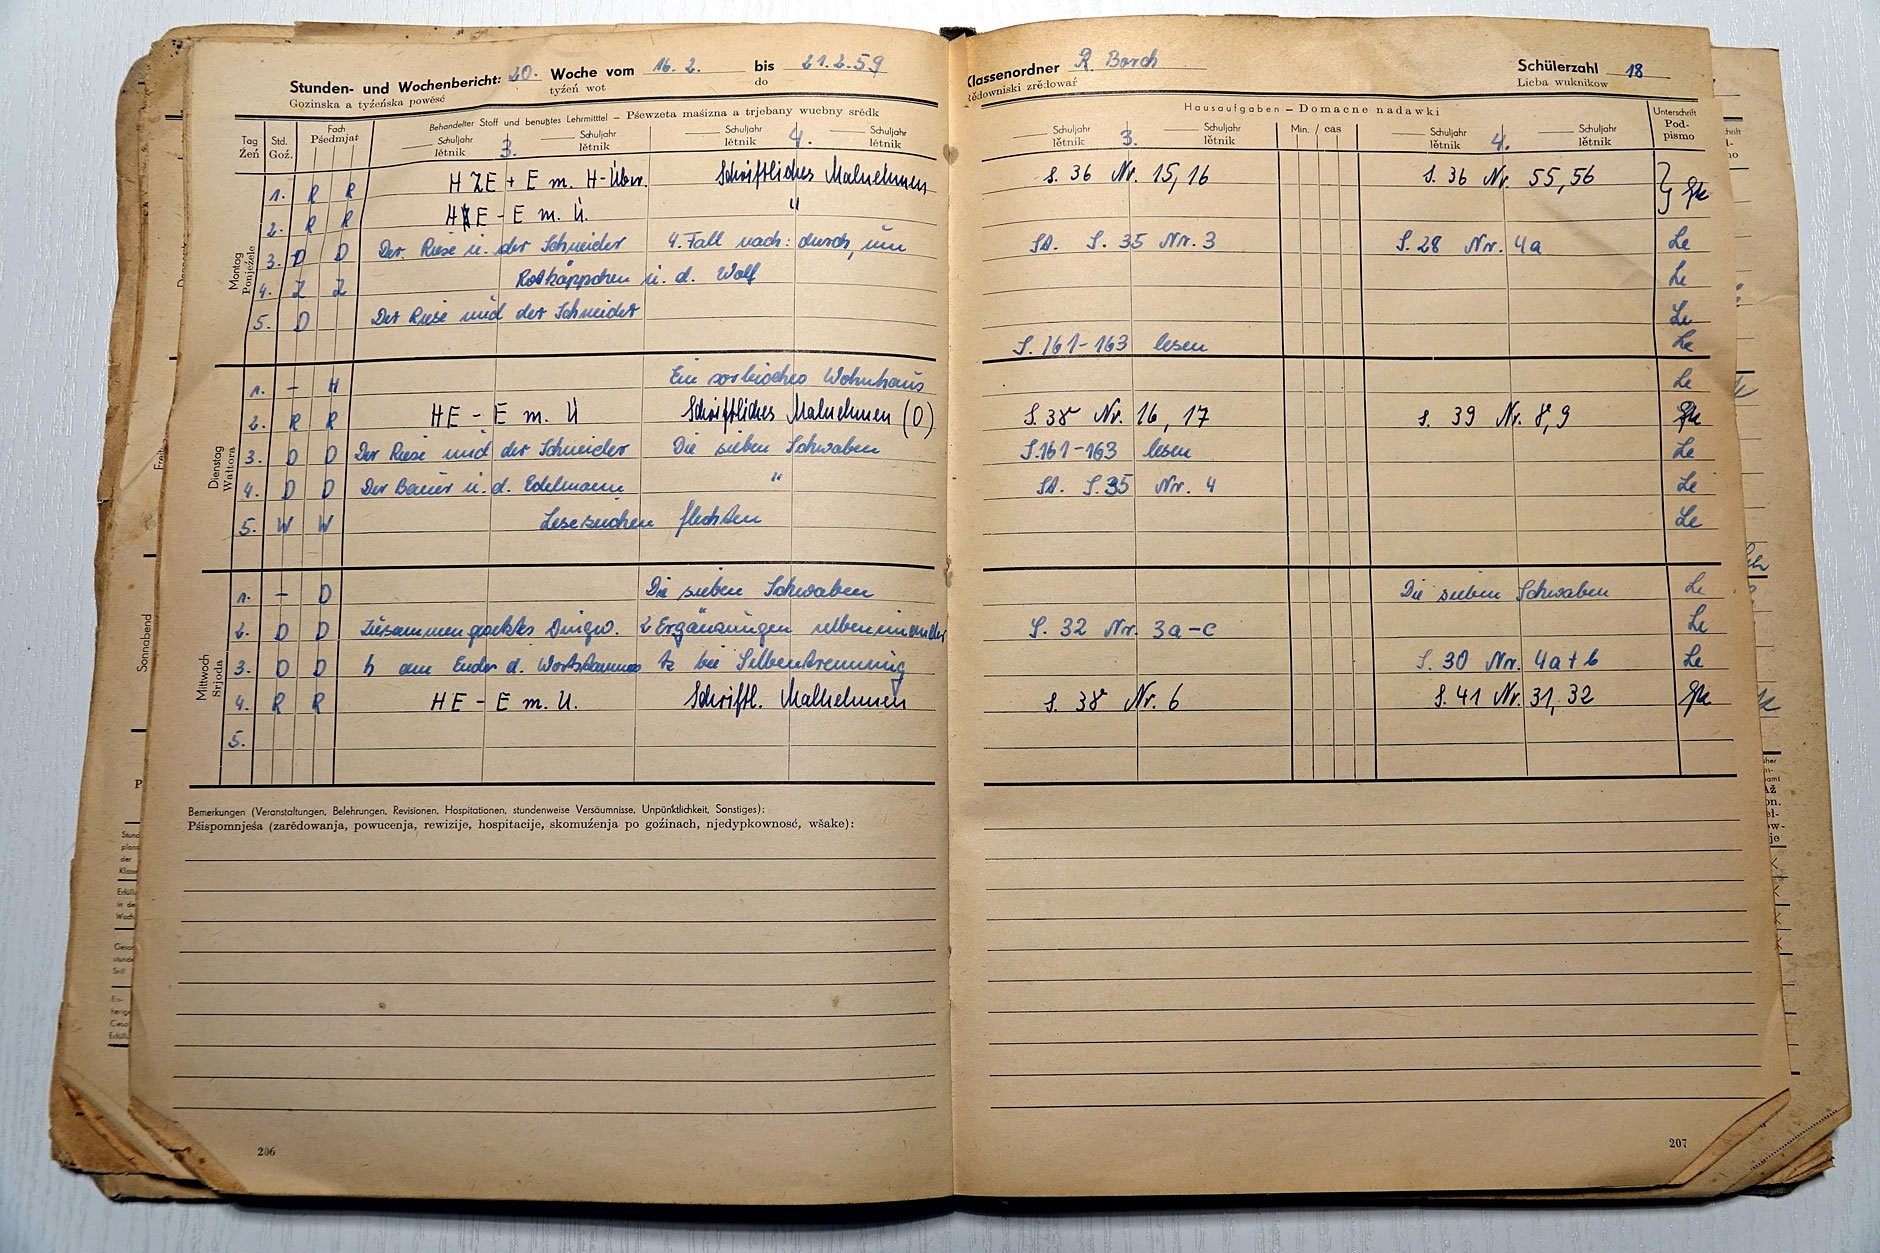 Stunden- und Wochenbericht: 20. Woche vom 16. 2. bis 21. 2. 59
Gozinska a tyźeńska powěsć tyźeń wot do
Tag Std. Fach Behandelter Stoff und benutztes Lehrmittel – Pśewzeta maśizna a trjebany wucbny srědk
Źeń Goź. Pśedmjat Schuljahr 3. Schuljahr Schuljahr 4. Schuljahr
lětnik lětnik lětnik lětnik
Montag
Ponjeźele
1. R R HZE + E m. H-Über. Schriftliches Malnehmen
2. R R HE - E m. Ü. "
3. D D Der Riese u. der Schneider 4. Fall nach: durch, um
4. Z Z Rotkäppchen u. d. Wolf
5. D Der Riese und der Schneider
Dienstag
Wałtora
1. – H Ein sorbisches Wohnhaus
2. R R HE - E m. Ü Schriftliches Malnehmen (0)
3. D D Der Riese und der Schneider Die sieben Schwaben
4. D D Der Bauer u. d. Edelmann "
5. W W Lesezeichen flechten
Mittwoch
Srjoda
1. – D Die sieben Schwaben
2. D D Zusammengesetztes Dingw. 2 Ergänzungen nebeneinander
3. D D h am Ende d. Wortstammes tz bei Silbentrennung
4. R R HE - E m. Ü. Schriftl. Malnehmen
5.
Bemerkungen (Veranstaltungen, Belehrungen, Revisionen, Hospitationen, stundenweise Versäumnisse, Unpünktlichkeit, Sonstiges):
Pśispomnjeśa (zarědowanja, powucenja, rewizije, hospitacije, skomuźenja po goźinach, njedypkownosć, wšake):
206
Klassenordner R. Borch Schülerzahl 18
Rědowniski zrědowaŕ Licba wuknikow
Hausaufgaben – Domacne nadawki Unterschrift
Schuljahr 3. Schuljahr Min. / cas Schuljahr 4. Schuljahr Pod-
lětnik lětnik lětnik lětnik pismo
S. 36 Nr. 15, 16 S. 36 Nr. 55, 56
SA. S. 35 Nr. 3 S. 28 Nr. 4a Le
Le
Le
S. 161-163 lesen Le
Le
S. 38 Nr. 16, 17 S. 39 Nr. 8, 9
S. 161-163 lesen Le
SA. S. 35 Nr. 4 Le
Le
Die sieben Schwaben Le
S. 32 Nr. 3a-c Le
S. 30 Nr. 4a+b Le
S. 38 Nr. 6 S. 41 Nr. 31, 32
207
Sonnabend